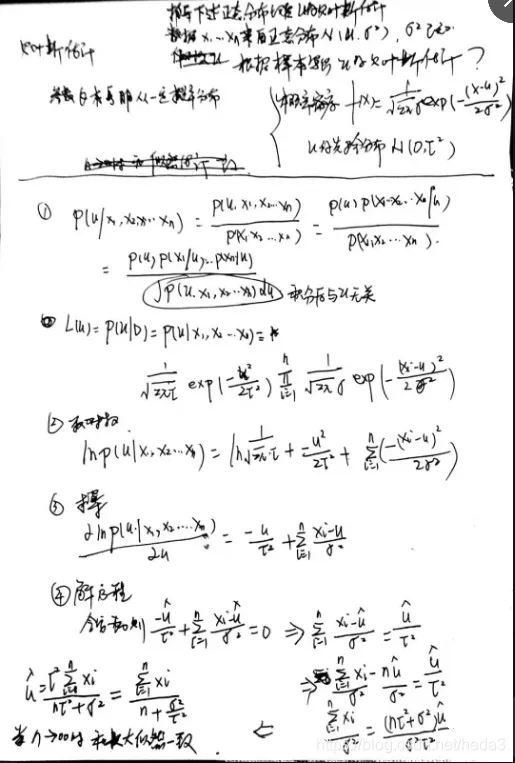 推导下述正态分布均值 u 的贝叶斯估计
贝叶斯估计
数据 x₁…xₙ 来自正态分布 N(u, σ²), σ² 已知
根据样本写出 u 的贝叶斯估计?
参数自身服从一定概率分布
概率密度 f(x) = \frac{1}{\sqrt{2π}σ} exp(-\frac{(x-u)²}{2σ²})
u 的先验分布 N(0, τ²)
① p(u|x₁,x₂…xₙ) = \frac{p(u,x₁,x₂…xₙ)}{p(x₁x₂…xₙ)} = \frac{p(u)p(x₁x₂…xₙ|u)}{p(x₁,x₂…xₙ)}.
= \frac{p(u)p(x₁|u)…p(xₙ|u)}{∫p(u,x₁,x₂…xₙ)du} 积分后与u无关
L(u) = p(u|D) = p(u|x₁,x₂…xₙ) =
\frac{1}{\sqrt{2π}τ} exp(-\frac{u²}{2τ²}) \prod_{i=1}^{n} \frac{1}{\sqrt{2π}σ} exp(-\frac{(xᵢ-u)²}{2σ²})
② 取对数
ln p(u|x₁,x₂…xₙ) = ln\frac{1}{\sqrt{2π}·τ} + \frac{-u²}{2τ²} + \sum_{i=1}^{n}(\frac{-(xᵢ-u)²}{2σ²})
③ 求导
\frac{∂ln p(u|x₁,x₂…xₙ)}{∂u} = \frac{-u}{τ²} + \sum_{i=1}^{n}\frac{xᵢ-u}{σ²}
④ 解方程
\frac{-û}{τ²} + \sum_{i=1}^{n}\frac{xᵢ-û}{σ²} = 0 ⇒ \sum_{i=1}^{n}\frac{xᵢ-û}{σ²} = \frac{û}{τ²}
⇒ \sum_{i=1}^{n}\frac{xᵢ}{σ²} - \frac{nû}{σ²} = \frac{û}{τ²}
û = \frac{τ²\sum_{i=1}^{n}xᵢ}{nτ²+σ²} = \frac{\sum_{i=1}^{n}xᵢ}{n+\frac{σ²}{τ²}}
⇐ \frac{\sum_{i=1}^{n}xᵢ}{σ²} = \frac{(nτ²+σ²)û}{σ²τ²}
当 n→∞时 和最大似然一致
https://blog.csdn.net/heda3